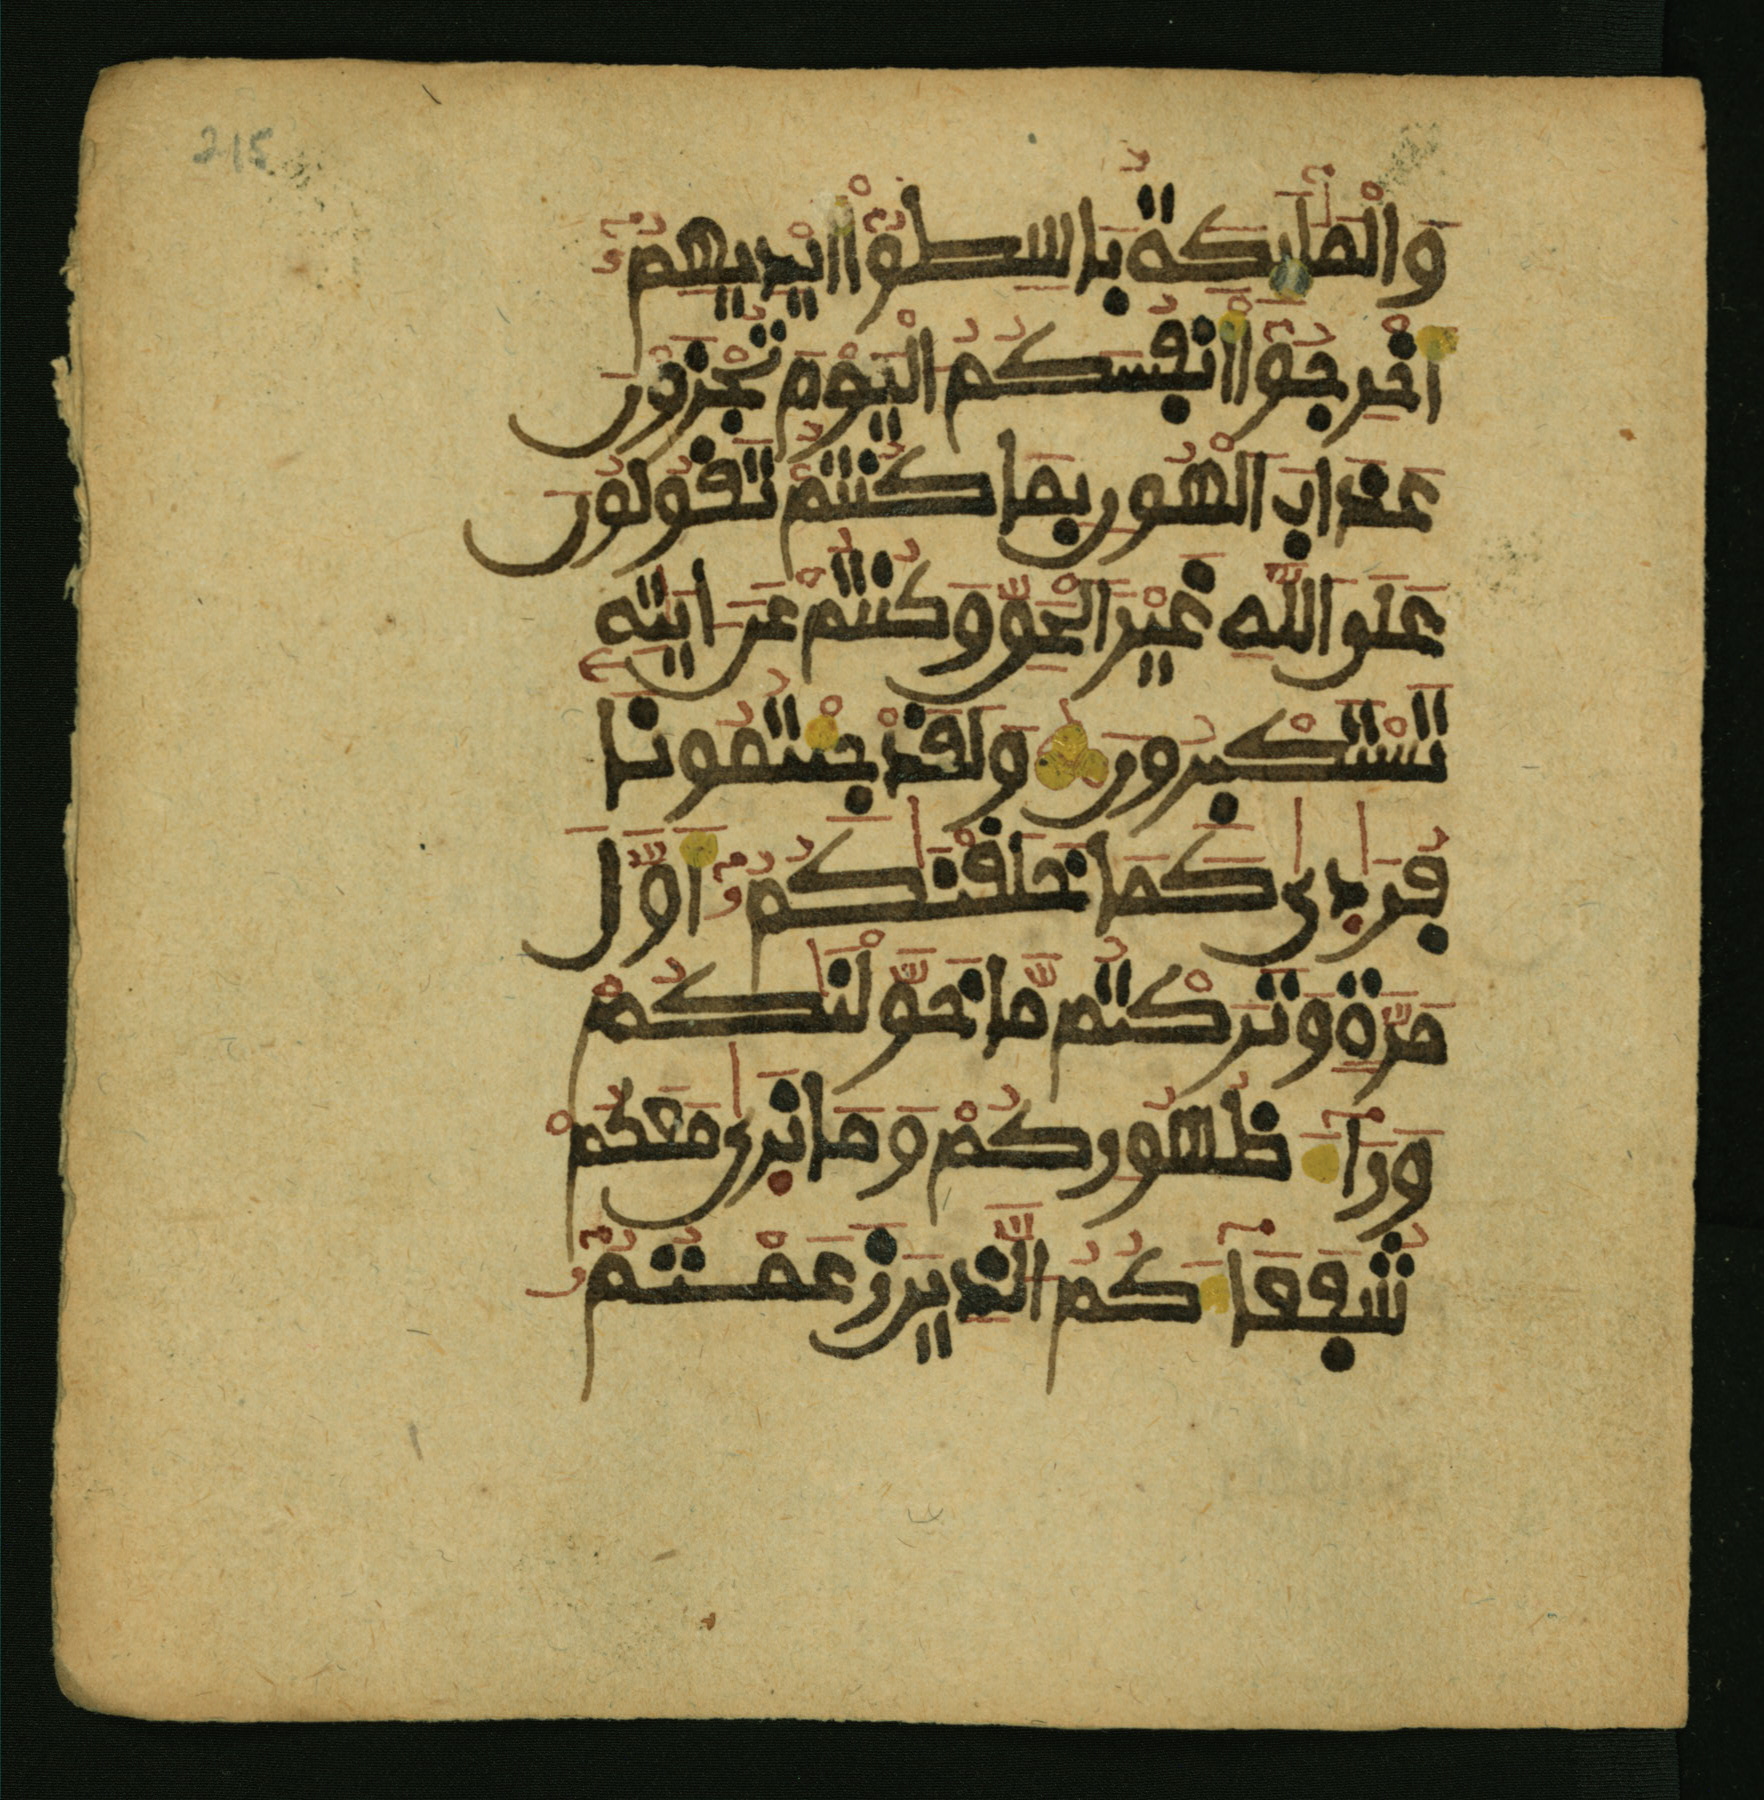 215
وَالْمَلَٰٓئِكَةُ بَاسِطُوٓاْ أَيْدِيهِمُۥٓ
أَخْرِجُوٓاْ أَنفُسَكُمُ اَلْيَوْمَ تُجْزَوْنَ
عَذَابَ اَلْهُونِ بِمَا كُنتُمْ تَقُولُونَ
عَلَى اَللَّهِ غَيْرَ اَلْحَقِّ وَكُنتُمْ عَنَ ايَٰتِهِۦ
تَسْتَكْبِرُونَ وَلَقَدْ جِئْتُمُونَا
فُرَٰدَىٰ كَمَا خَلَقْنَٰكُمُۥٓ أَوَّلَ
مَرَّةٍ وَتَرَكْتُم مَّا خَوَّلْنَٰكُمْ
وَرَآءَ ظُهُورِكُمْ وَمَا نَرَىٰ مَعَكُمْ
شُفَعَآءَكُمُ اُلَّذِينَ زَعَمْتُمُۥٓ